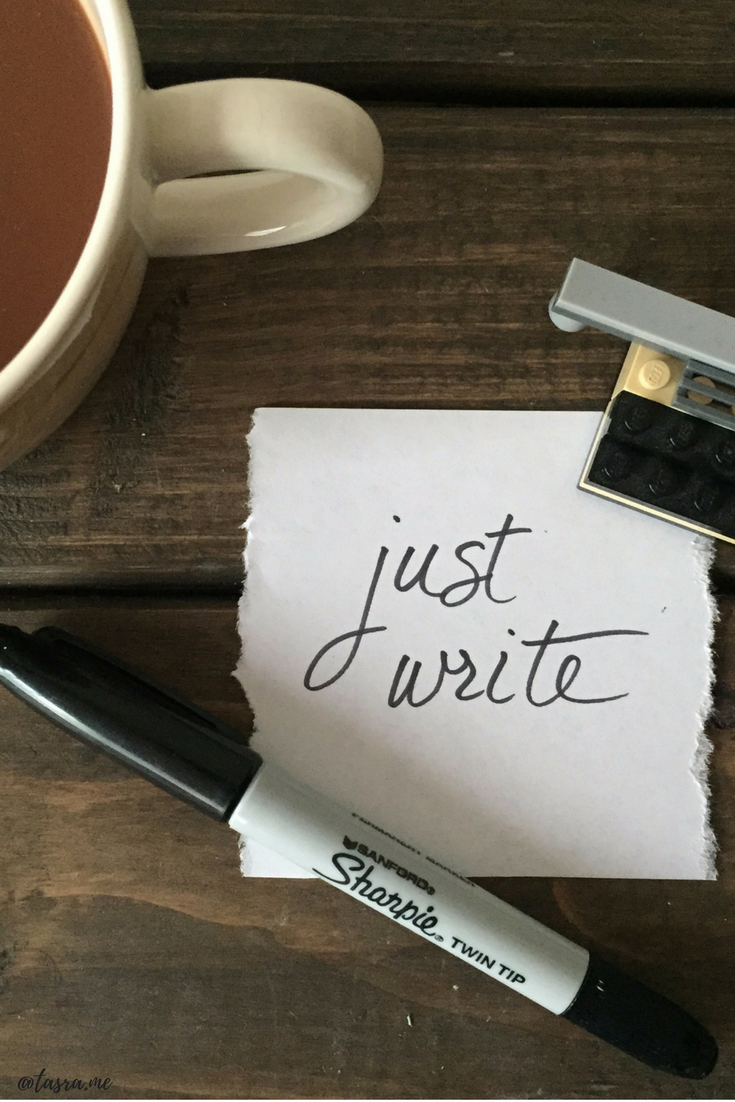 just
write
PERMANENT MARKER
SANFORD®
Sharpie® TWIN TIP
@tasra.me